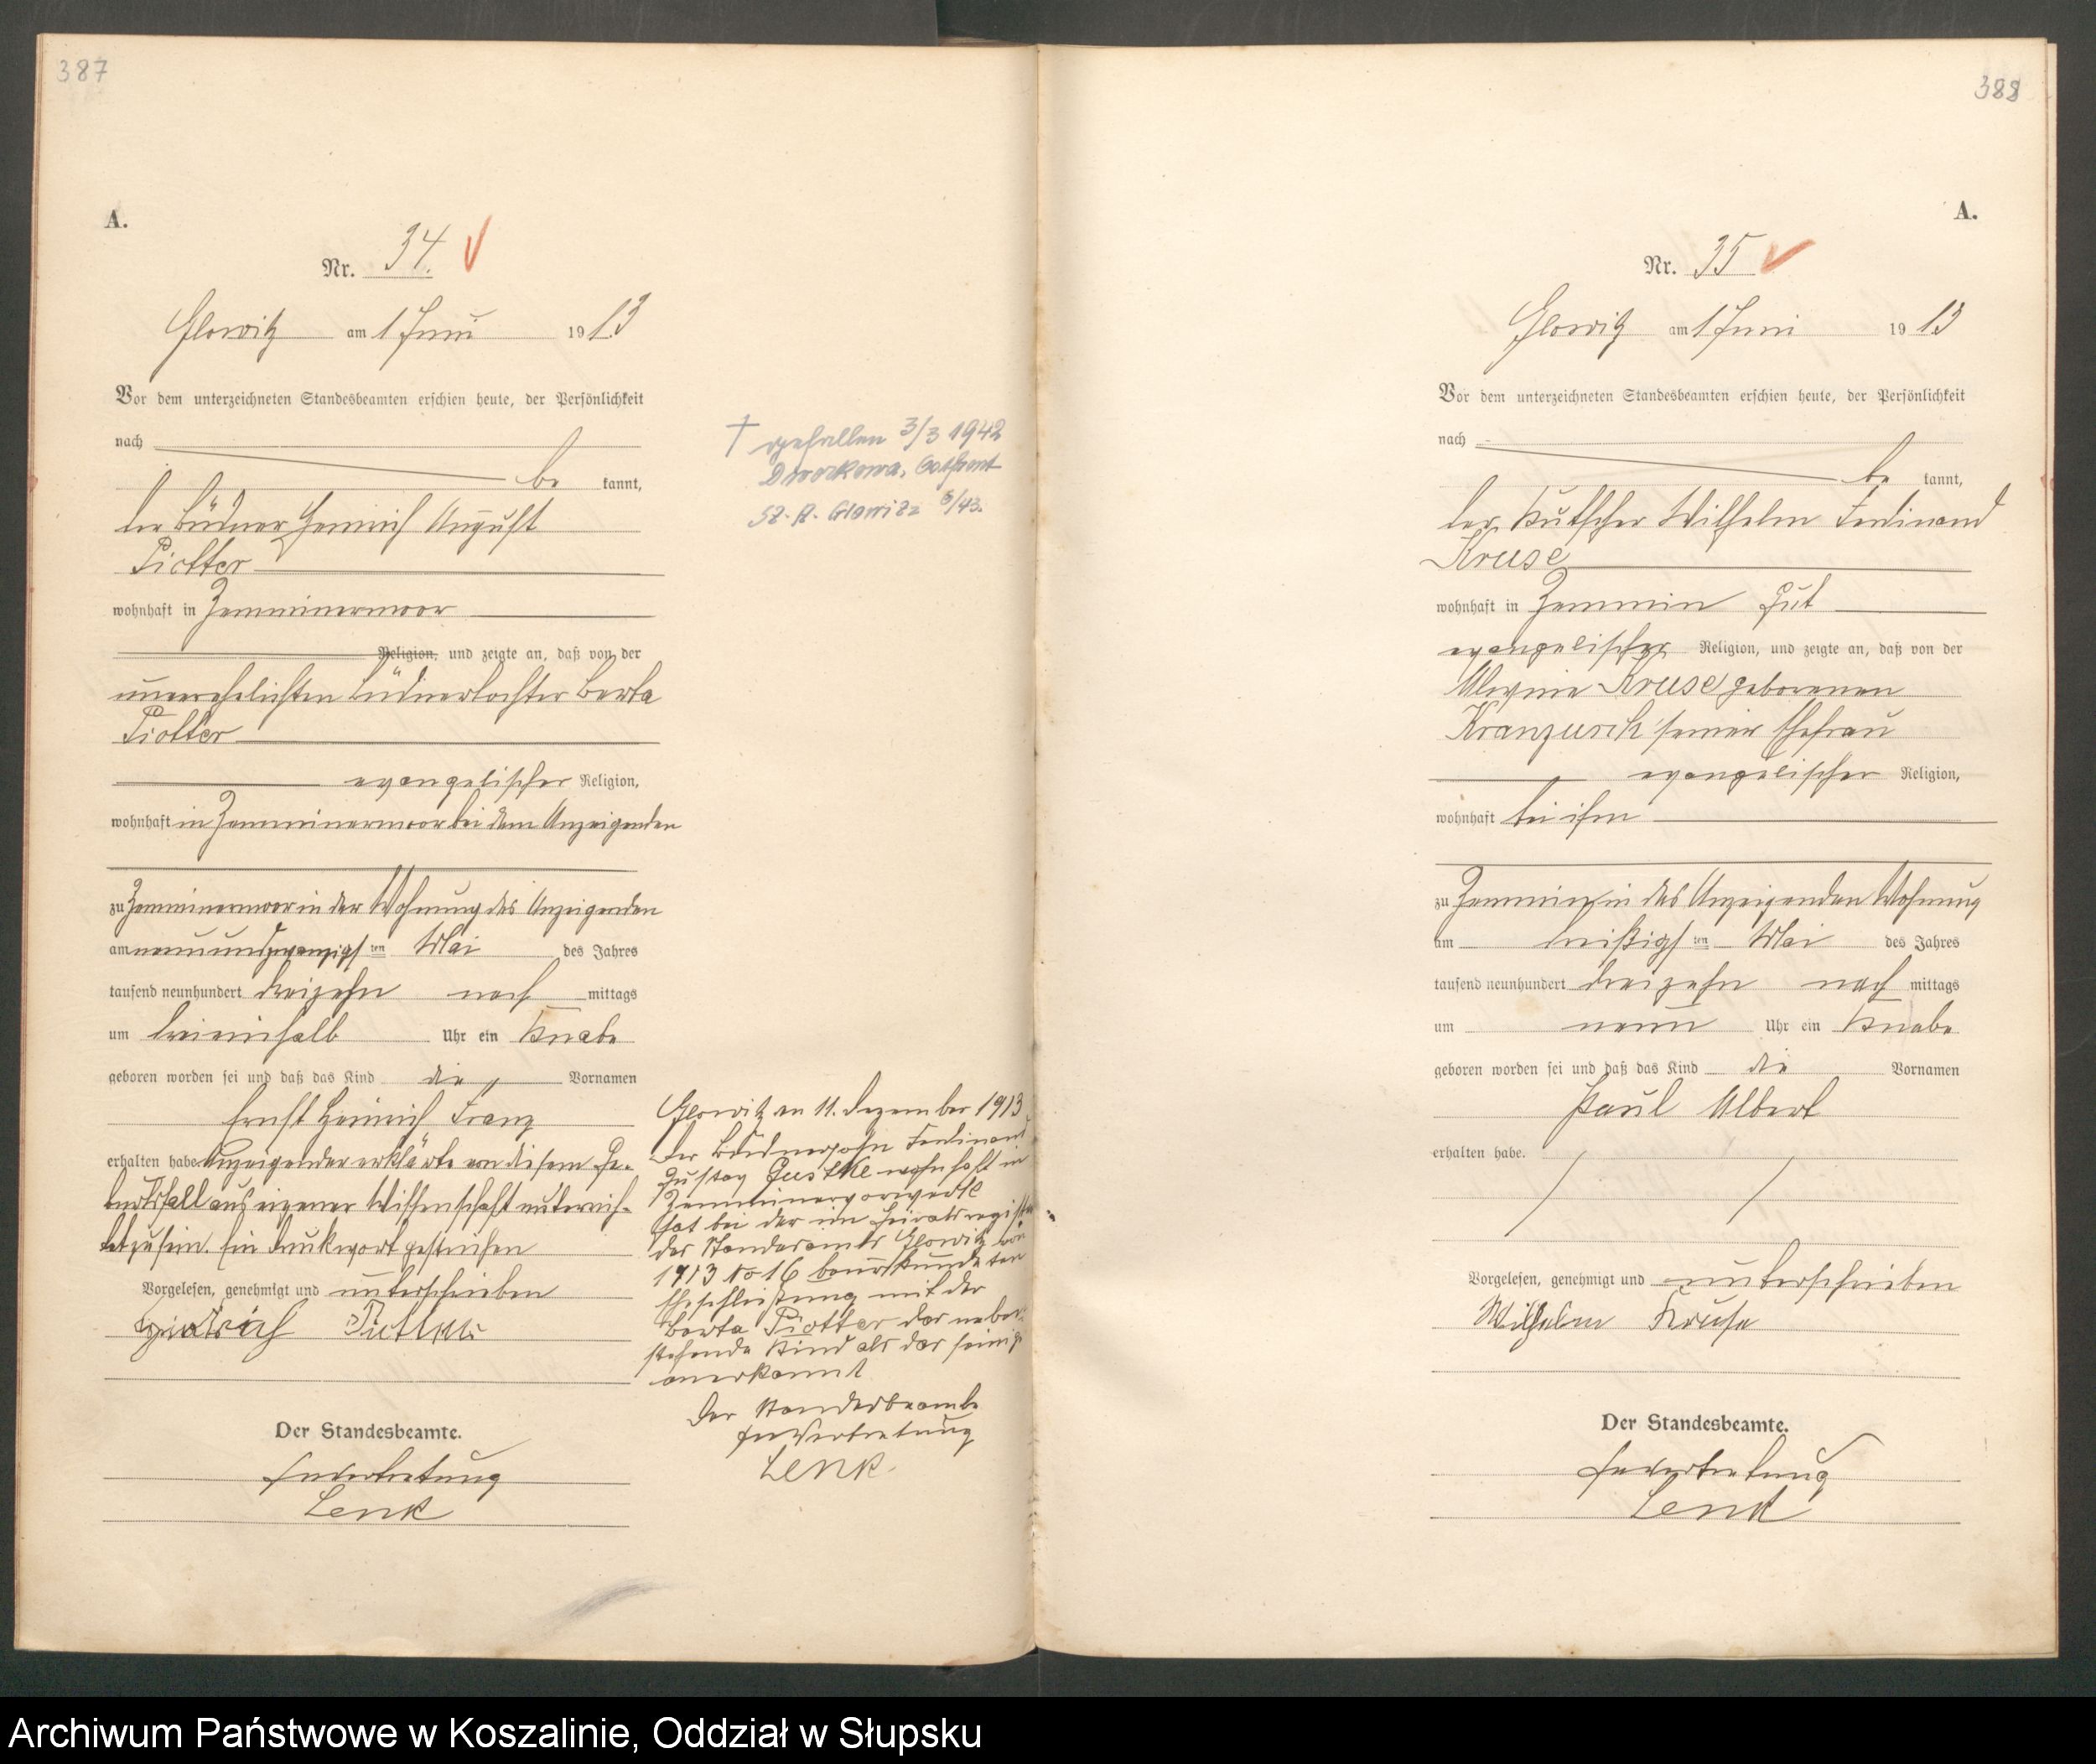 387
A.
Nr. 34.
Glowitz am 1 Juni 1913
Vor dem unterzeichneten Standesbeamten erschien heute, der Persönlichkeit
nach
be kannt,
der Büdner Heinrich August
Piotter
wohnhaft in Zemminermoor
Religion, und zeigte an, daß von der
unverehelichten Büdnertochter Berta
Piotter
evangelischer Religion,
wohnhaft in Zemminermoor bei dem Anzeigenden
zu Zemminermoor in der Wohnung des Anzeigenden
am neunundzwanzigsten Mai des Jahres
tausend neunhundert dreizehn nach mittags
um dreieinhalb Uhr ein Knabe
geboren worden sei und daß das Kind die Vornamen
Ernst Heinrich Franz
erhalten habe. Anzeigender erklärte von diesem Ge-
burtsfall aus eigener Wissenschaft unterrich-
tet zu sein. Ein Druckwort gestrichen
Vorgelesen, genehmigt und unterschrieben
Heinrich
Der Standesbeamte.
In Vertretung
Lenk
† gefallen 3/3 1942
Dworkowa, Ostfront
St. A. Glowitz 5/43.
Glowitz am 11. Dezember 1913
Der Büdnersohn Ferdinand
Gustav Gustke wohnhaft in
Zemminervorwerk
hat bei der im Heiratsregister
des Standesamts Glowitz von
1913 No 16 beurkundeten
Eheschließung mit der
Berta Piotter das neben-
stehende Kind als das seinige
anerkannt
Der Standesbeamte
In Vertretung
Lenk.
388
A.
Nr. 35
Glowitz am 1 Juni 1913
Vor dem unterzeichneten Standesbeamten erschien heute, der Persönlichkeit
nach
be kannt,
der Kutscher Wilhelm Ferdinand
Kruse
wohnhaft in Zemmin Gut
evangelischer Religion, und zeigte an, daß von der
Alwine Kruse geborenen
Kranzusch seiner Ehefrau
evangelischer Religion,
wohnhaft bei ihm
zu Zemmin in des Anzeigenden Wohnung
am dreißigsten Mai des Jahres
tausend neunhundert dreizehn nach mittags
um neun Uhr ein Knabe
geboren worden sei und daß das Kind die Vornamen
Paul Albert
erhalten habe.
Vorgelesen, genehmigt und unterschrieben
Wilhelm Kruse
Der Standesbeamte.
In Vertretung
Lenk
Archiwum Państwowe w Koszalinie, Oddział w Słupsku